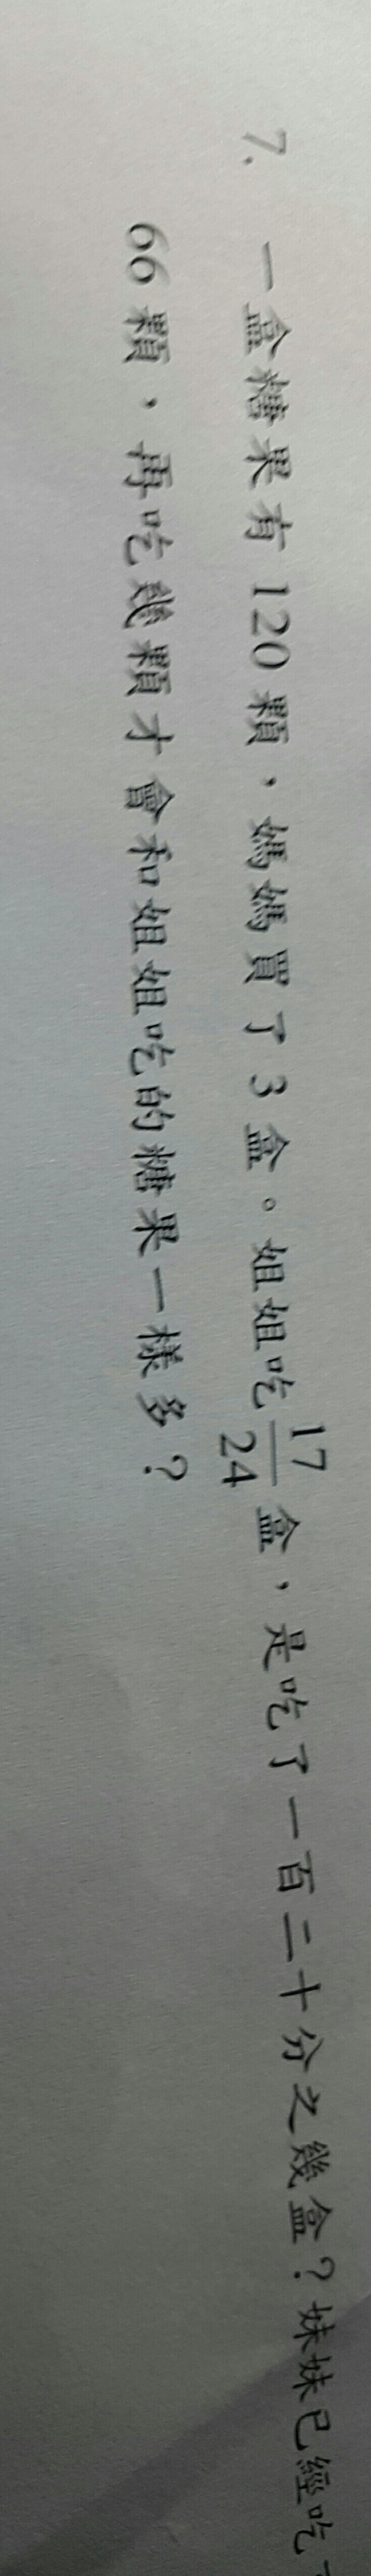 7. 一盒糖果有 120 顆，媽媽買了 3 盒。姐姐吃 17/24 盒，是吃了一百二十分之幾盒？妹妹已經吃了
66 顆，再吃幾顆才會和姐姐吃的糖果一樣多？